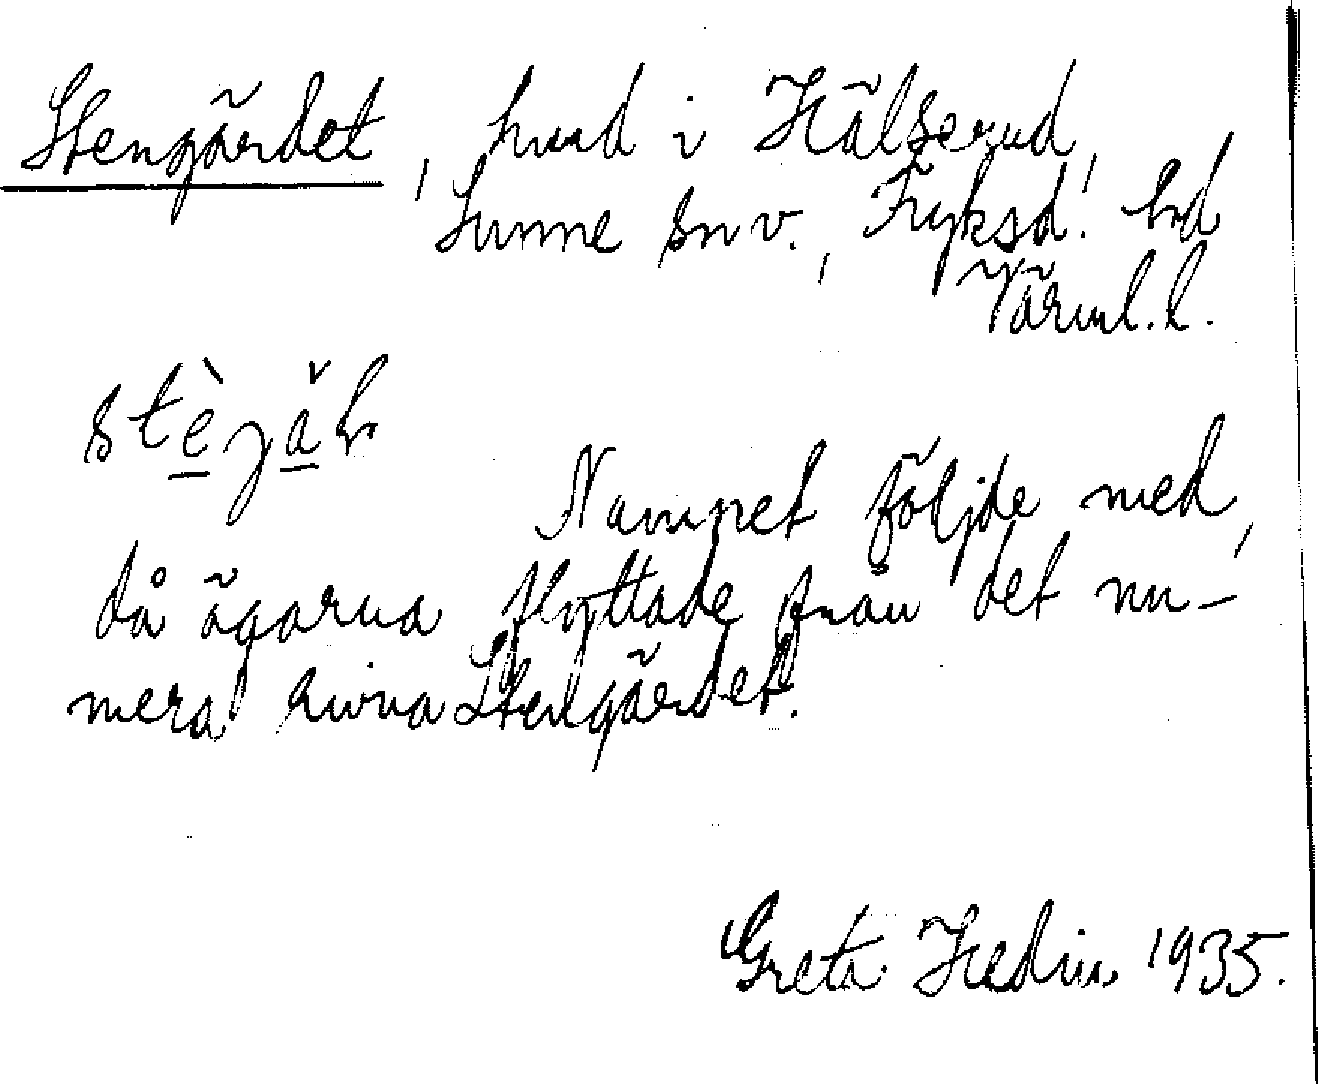 Stengärdet, hmd i Hälserud,
Sunne sn v., Fryksd. hd
Värml. l.
stèjǎh
Namnet följde med,
då ägarna flyttade från det nu-
mera rivna Stengärdet.
Greta Hedin 1935.